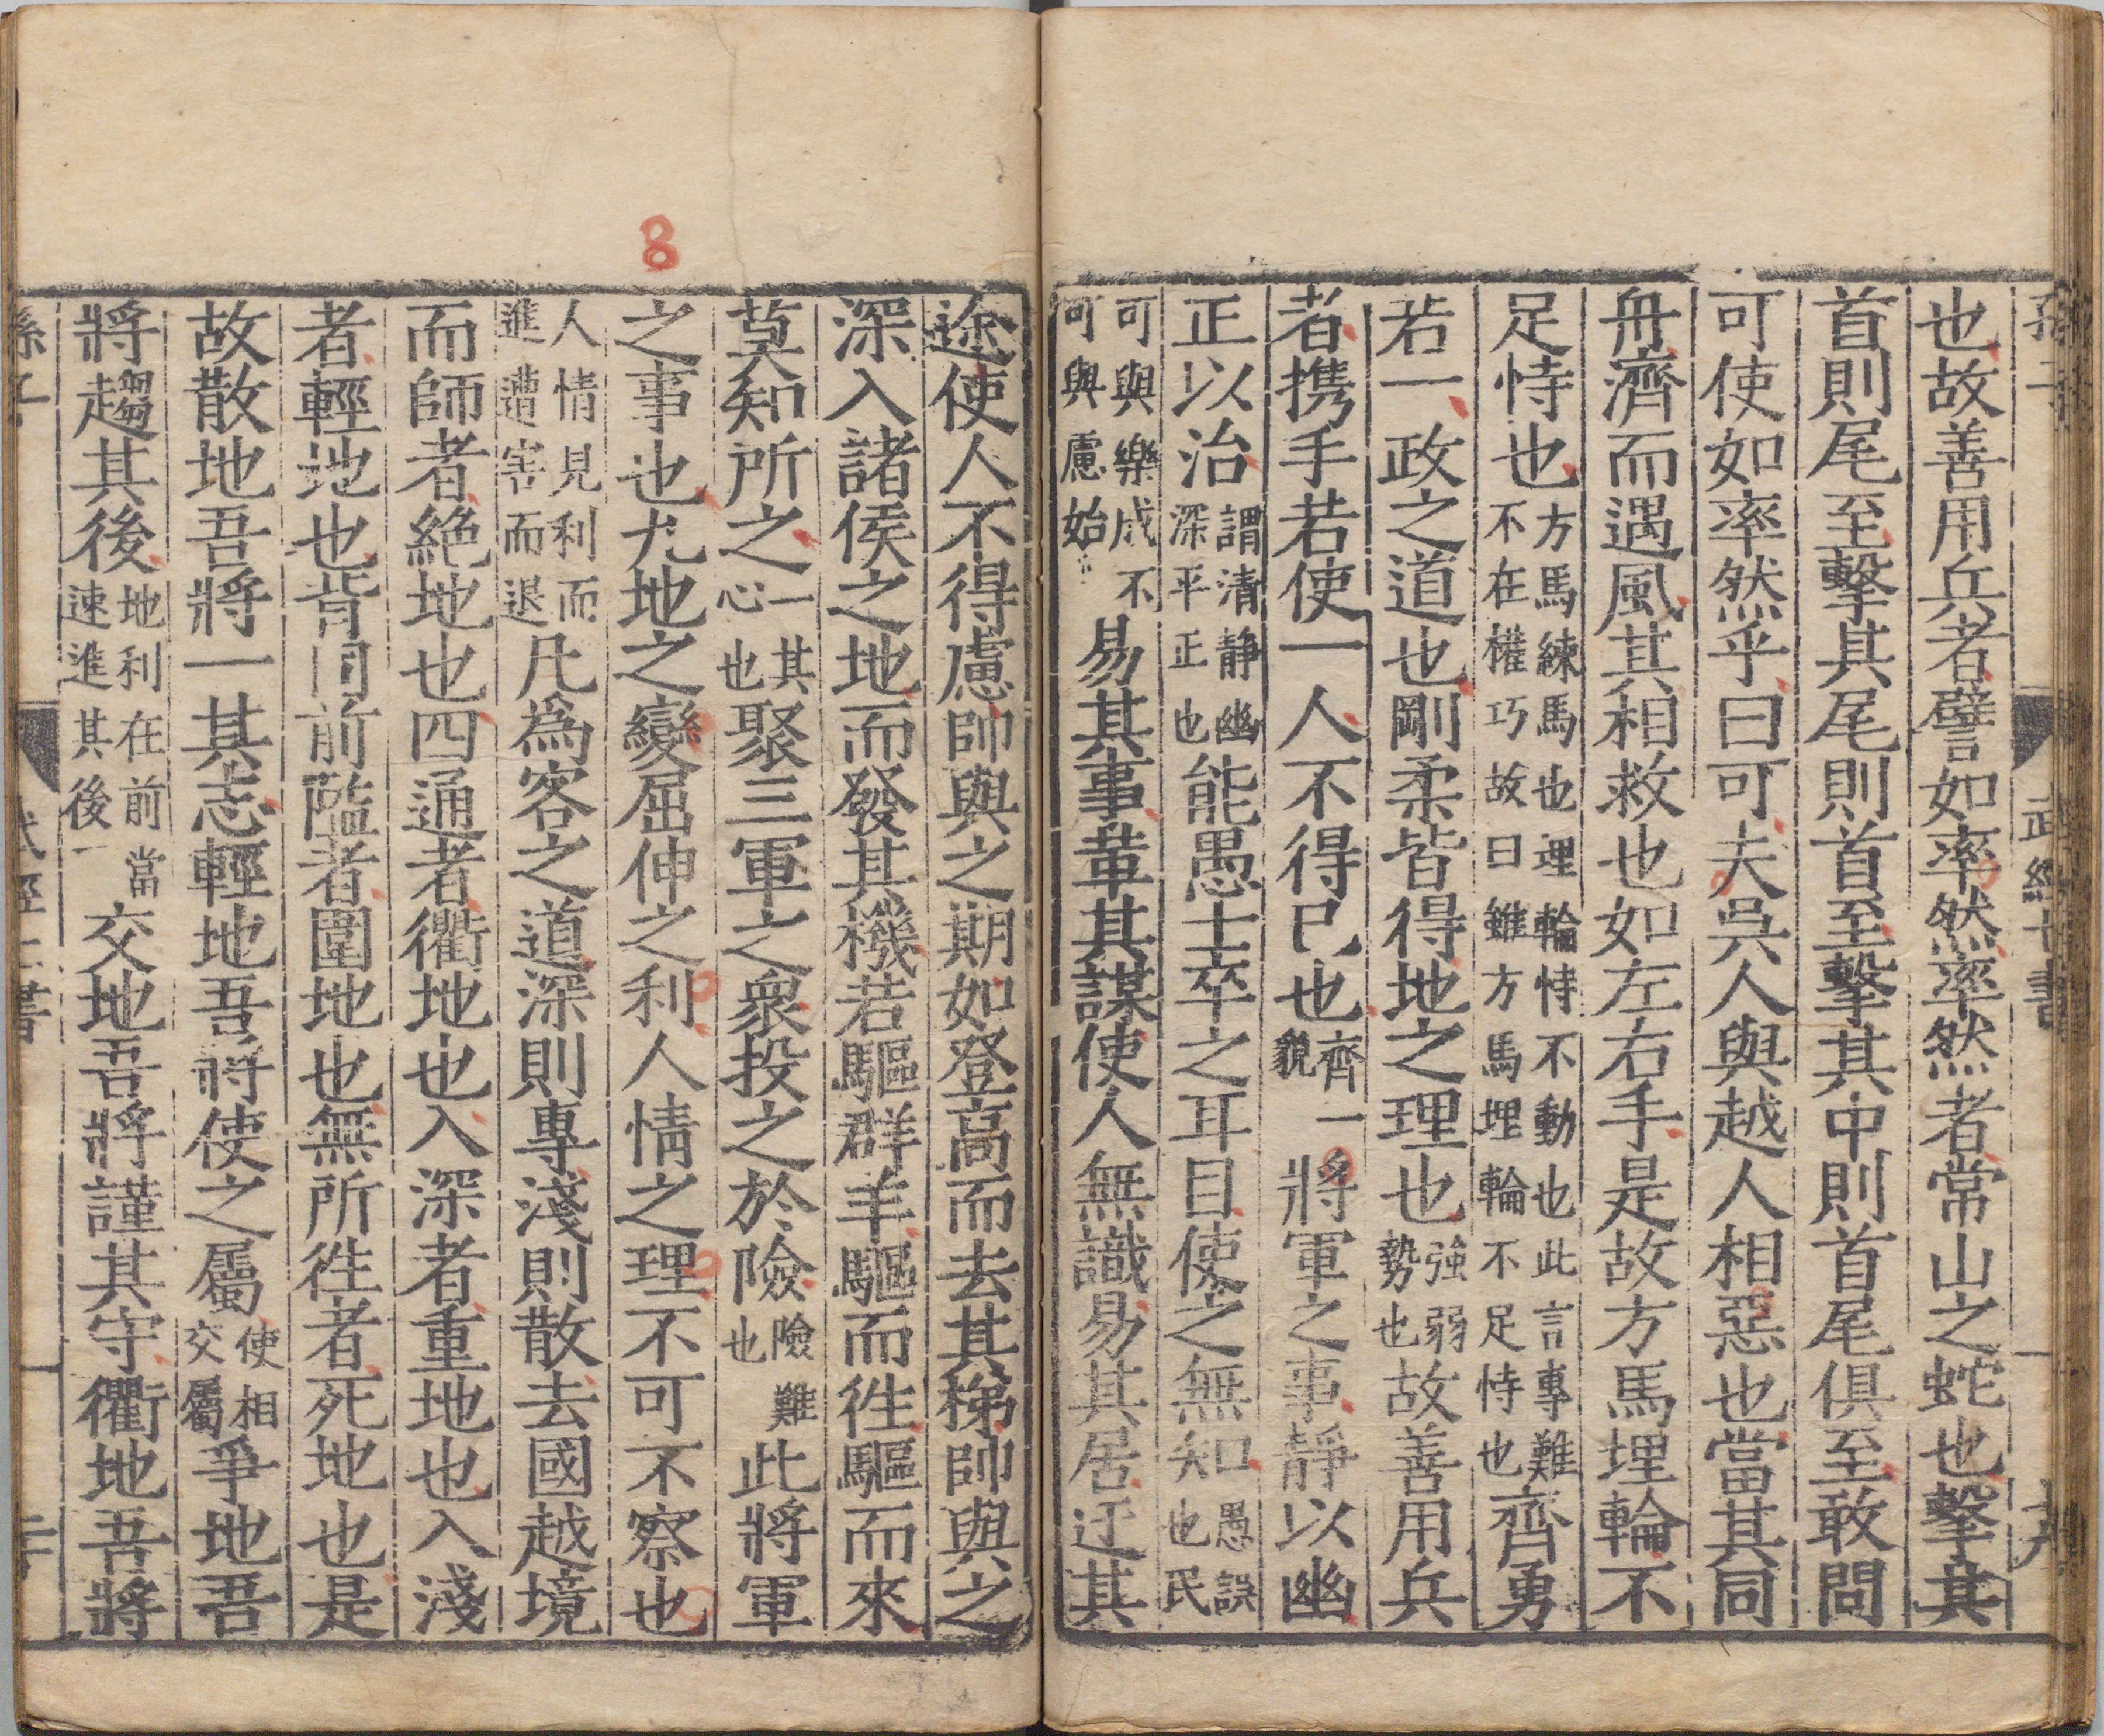 也故善用兵者譬如率然率然者常山之蛇也擊其
首則尾至擊其尾則首至擊其中則首尾俱至敢問
可使如率然乎曰可夫吳人與越人相惡也當其同
舟濟而遇風其相救也如左右手是故方馬埋輪不
足恃也方馬練馬也埋輪恃不動也此言專難不在權巧故曰雖方馬埋輪不足恃也齊勇
若一政之道也剛柔皆得地之理也強弱勢也故善用兵
者携手若使一人不得已也齊一貌將軍之事靜以幽
正以治謂清靜幽深平正也能愚士卒之耳目使之無知愚誤也民
可與樂成不可與慮始易其事革其謀使人無識易其居迂其
途使人不得慮帥與之期如登高而去其梯帥與之
深入諸侯之地而發其機若驅群羊驅而徃驅而來
莫知所之一其心也聚三軍之衆投之於險險難也此將軍
之事也九地之變屈伸之利人情之理不可不察也
人情見利而進遭害而退凡爲客之道深則專淺則散去國越境
而師者絶地也四通者衢地也入深者重地也入淺
者輕地也背固前隘者圍地也無所徃者死地也是
故散地吾將一其志輕地吾將使之屬使相交屬爭地吾
將趨其後地利在前當速進其後交地吾將謹其守衢地吾將
武經七書
8